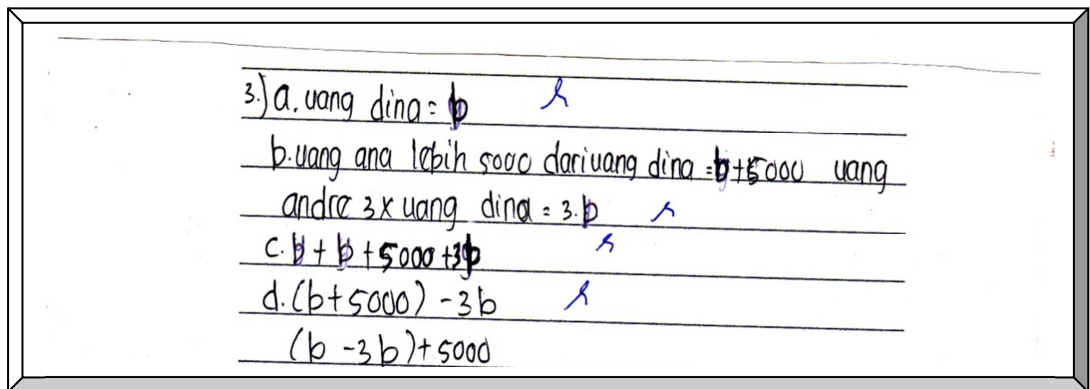 3.) a. uang dina = b
b. uang ana lebih 5000 dari uang dina = b + 5000 uang
andre 3 x uang dina = 3.b
c. b + b + 5000 + 3b
d. (b + 5000) - 3b
(b - 3b) + 5000